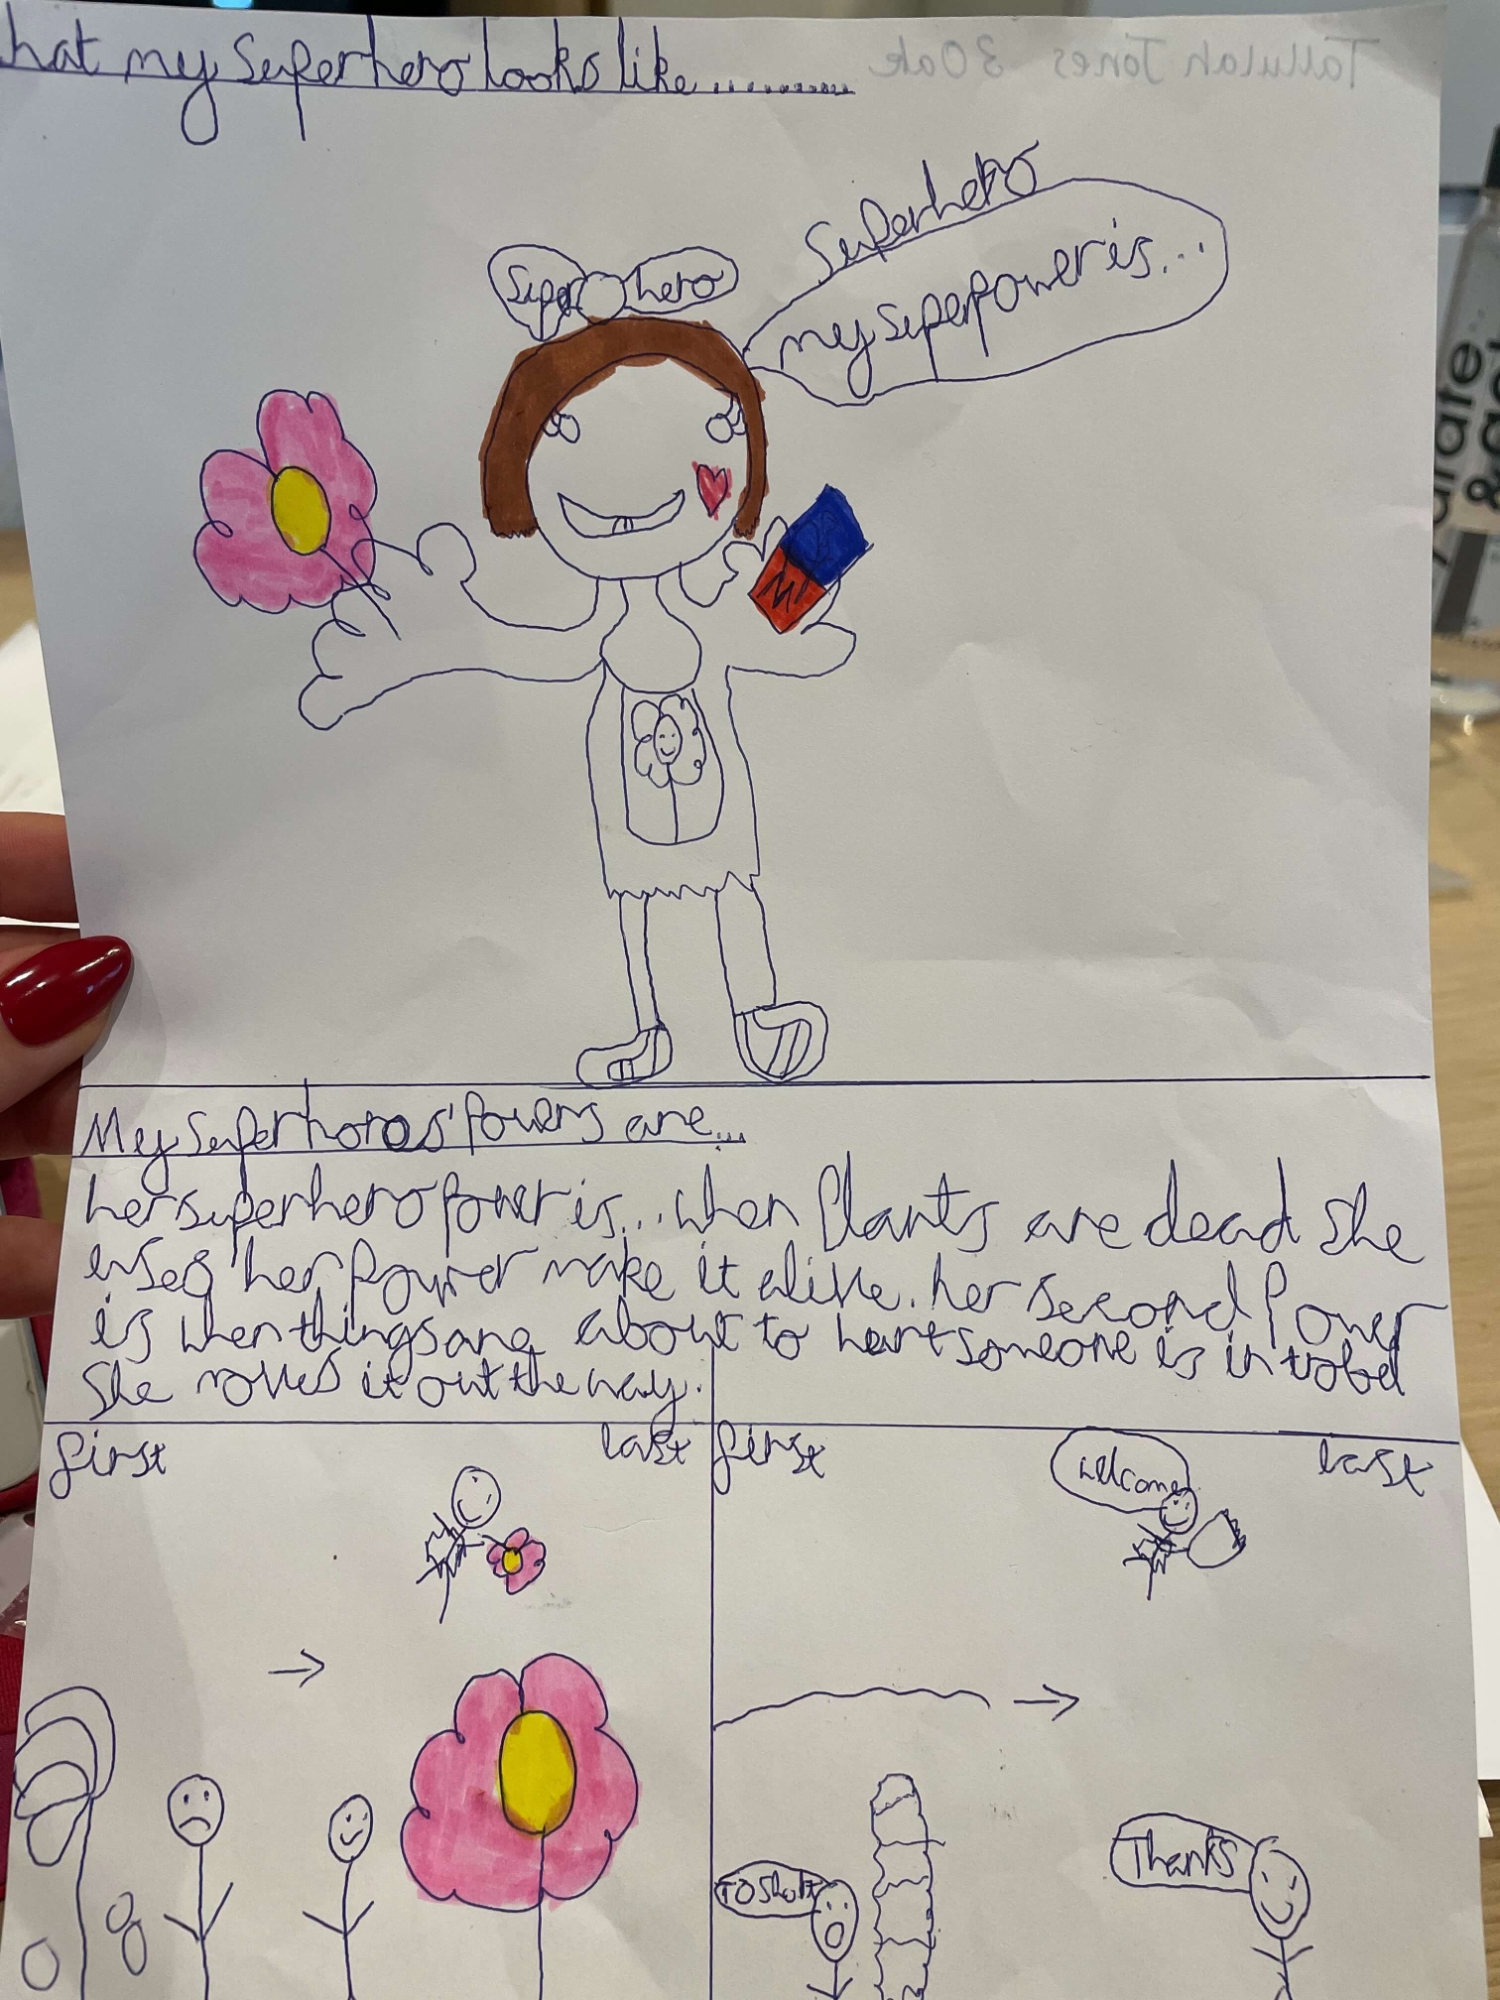 hat my Superhero looks like...........
Tallulah Jones 3 Oak
Superhero
my superpower is...
Super hero
M
My Superhoros' Powers are...
her superhero power is... when Plants are dead she
uses her power make it alive. her second Power
is when things are about to hurt someone is in trobel
She moves it out the way.
first last
first last
welcome
Thanks